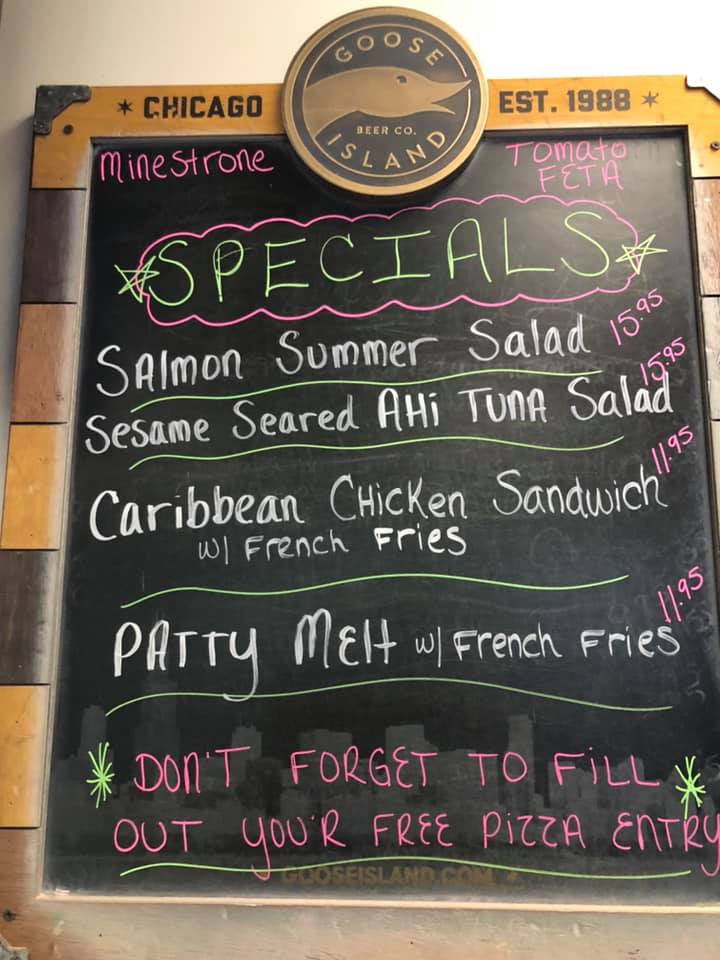 GOOSE
BEER CO.
ISLAND
* CHICAGO
EST. 1988 *
Minestrone
Tomato
FETA
SPECIALS
SAlmon Summer Salad 15.95
Sesame Seared AHi TUNA Salad 15.95
Caribbean CHicken Sandwich 11.95
w/ French Fries
PATTY MElt w/ French Fries 11.95
DON'T FORGET TO FiLL
OUT YOU'R FREE PiZZA ENTRY
GOOSEISLAND.COM